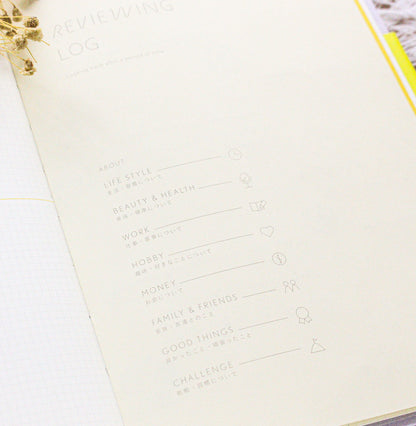 REVIEWING
LOG
Looking back after a period of time
ABOUT
LIFE STYLE
生活・習慣について
BEAUTY & HEALTH
美容・健康について
WORK
仕事・家事について
HOBBY
趣味・好きなことについて
MONEY
お金について
FAMILY & FRIENDS
家族・友達とのこと
GOOD THINGS
良かったこと・頑張ったこと
CHALLENGE
挑戦・目標について